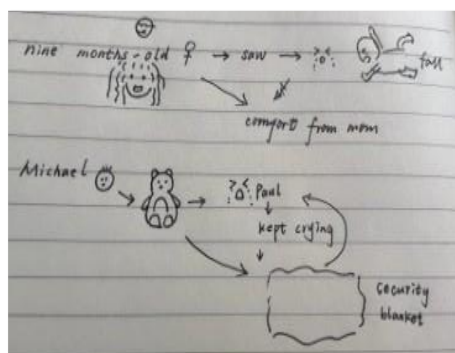 nine months-old ♀ → saw → fall
comfort from mom
Michael → → Paul
kept crying
security
blanket